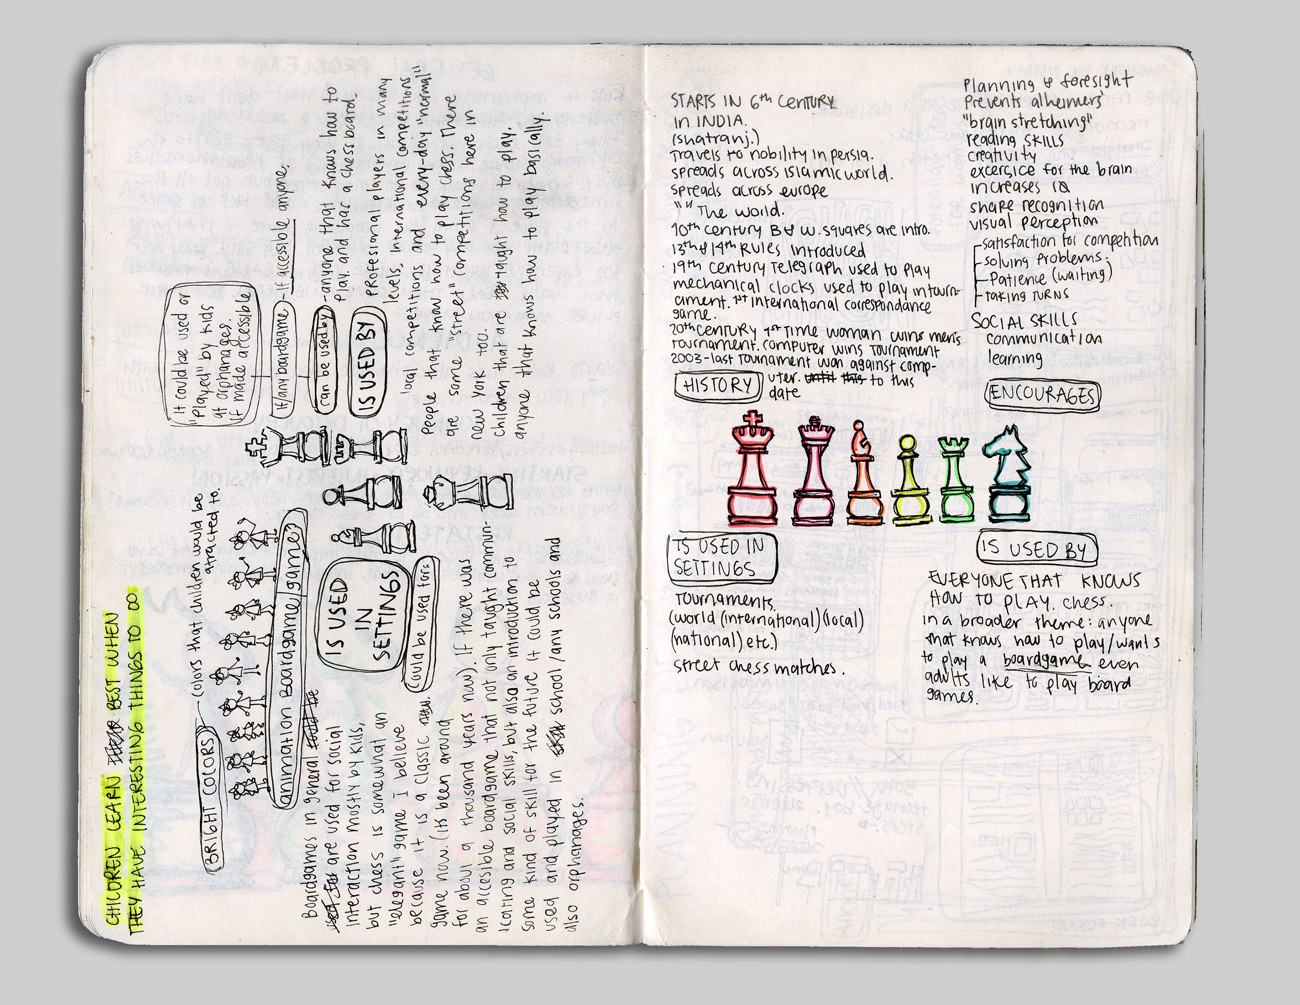 CHILDREN LEARN BEST WHEN
THEY HAVE INTERESTING THINGS TO DO.
BRIGHT COLORS
colors that children would be
attracted to.
animation Boardgame/game
Boardgames in general
are used for social
interaction mostly by kids,
but chess is somewhat an
"elegant" game I believe
because it is a classic
game now. (its been around
for about a thousand years now). If there was
an accesible boardgame that not only taught commun-
icating and social skills, but also an introduction to
some kind of skill for the future it could be
used and played in school/any schools and
also orphanages.
IS USED
IN
SETTINGS
Could be used for:
it could be used or
"Played" by kids
at orphanages.
if made accessible
if/any boardgame
- if accessible anyone,
can be used by
-anyone that knows how to
play. and has a chessboard.
IS USED BY
PROFESIONAL players in many
levels, International competitions
local competitions and every-day "normal"
People that know how to play chess. There
are some "street" competitions here in
new york too.
Children that are taught how to play.
anyone that knows how to play basically.
STARTS IN 6th CENTURY
IN INDIA.
(shatranj.)
Travels to nobility in persia.
spreads across islamic world.
spreads across europe
"" The world.
10th century B & W. squares are intro.
13th & 14th RULES introduced
19th century Telegraph used to play
mechanical clocks used to play in tourn-
ament. 1st international correspondance
game.
20th CENTURY 1st Time woman wins men's
tournament. computer wins tournament
2003-last tournament won against comp-
uter. until this to this
date
HISTORY
Planning & foresight
Prevents alheimers'
"brain stretching"
reading SKILLS
creativity
excercice for the brain
increases IQ
share recognition
visual perception
-satisfaction for competition
-solving Problems.
-Patience (waiting)
-taking TURNS
SOCIAL SKILLS
communication
learning
ENCOURAGES
IS USED IN
SETTINGS
Tournaments.
(world (international)(local)
(national) etc.)
street chess matches.
IS USED BY
EVERYONE THAT KNOWS
HOW TO PLAY. chess.
in a broader theme: anyone
that knows how to play/wants
to play a boardgame even
adults like to play board
games.